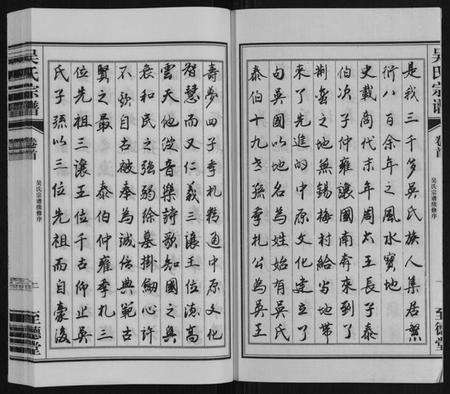 吴氏宗谱
卷首
吴氏宗谱续修序
至德堂
是我三千多吴氏族人集居繁
衍八百余年之风水宝地
史载商代末年周太王长子泰
伯次子仲雍让国南奔来到了
荆蛮之地无锡梅村给当地带
来了先进的中原文化建立了
句吴国以地名为姓始有吴氏
泰伯十九世孙寿梦公为吴王
寿梦四子季札精通中原文化
智慧而又仁义三让王位德高
云天他波音乐诗歌知国之兴
衰和民之强弱徐墓挂劍心许
不欺自古被奉为诚信典范古
贤之最泰伯仲雍季札三
位先祖三让王位千古仰止吴
氏子孙以三位先祖而自豪后
吴氏宗谱
卷首
吴氏宗谱续修序
至德堂